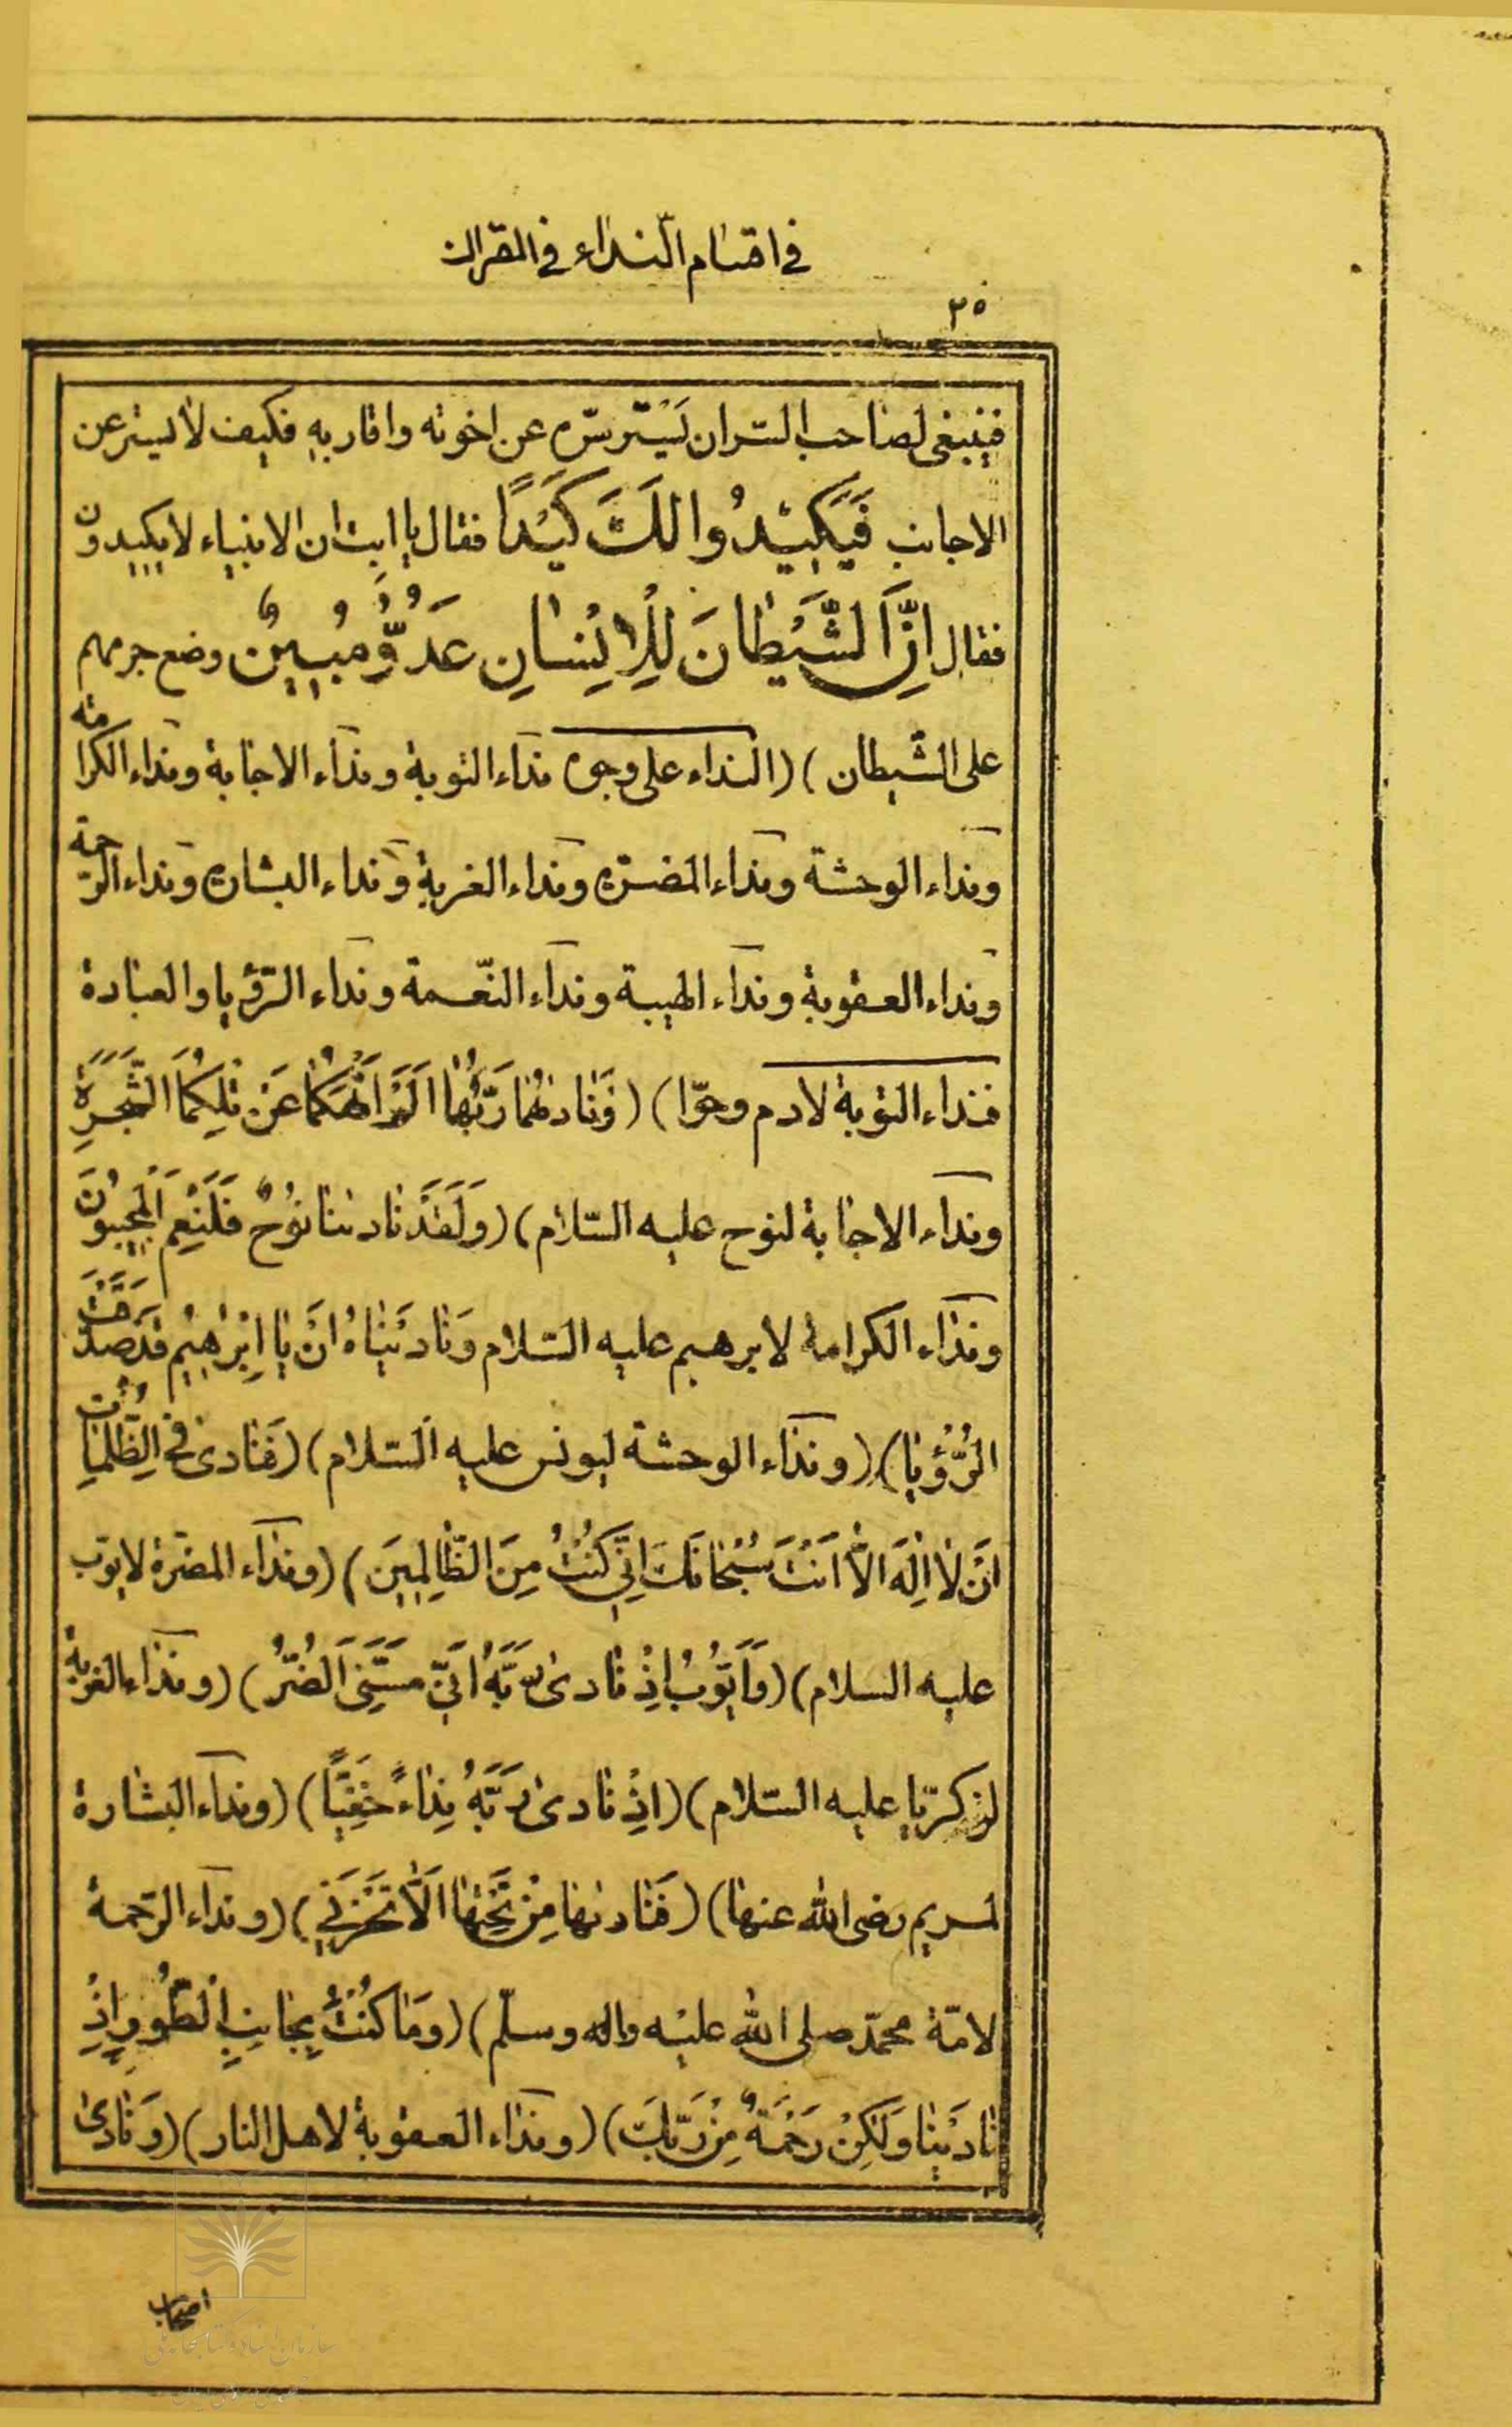 في اقسام النداء في القران
٣٥
فينبغى لصاحب السّر ان يَسْتر سّره عن اخوته واقاربه فكيف لا يستر عن
الاجانب فَيَكِيْدُوا لَكَ كَيْدًا فقال يا ابت ان الانبياء لا يكيدون
فقال اِنَّ الشَّيْطانَ لِلْاِنْسانِ عَدُوٌّ مُبِيْنٌ وضع جرمهم
على الشّيطان) (النداء على وجوه نداء التوبة ونداء الاجابة ونداء الكرامة
ونداء الوحشة ونداء المضرّة ونداء الغربة ونداء البشارة ونداء الرّحمة
ونداء العقوبة ونداء الهيبة ونداء النّعمة ونداء الرّؤيا والعبادة
فنداء التوبة لادم وحوّا) (وَنادٰىهُما رَبُّهُما اَلَمْ اَنْهَكُما عَنْ تِلْكُمَا الشَّجَرَةِ
ونداء الاجابة لنوح عليه السّلام) (وَلَقَدْ نادٰىنا نُوْحٌ فَلَنِعْمَ الْمُجِيْبُوْنَ
ونداء الكرامة لابرهيم عليه السّلام وَنادَيْناهُ اَنْ يا اِبْرٰهِيْمُ قَدْ صَدَّقْتَ
الرُّؤْيا) (ونداء الوحشة ليونس عليه السّلام) (فَنادى فِي الظُّلُماتِ
اَنْ لا اِلٰهَ اِلاّ اَنْتَ سُبْحانَكَ اِنِّي كُنْتُ مِنَ الظّالِمِيْنَ) (ونداء المضرّة لايّوب
عليه السلام) (وَاَيُّوْبَ اِذْ نادى رَبَّهُ اَنِّي مَسَّنِىَ الضُّرُّ) (ونداء الغربة
لزكريّا عليه السّلام) (اِذْ نادى رَبَّهُ نِداءً خَفِيًّا) (ونداء البشارة
لمريم رضى الله عنها) (فَنادٰىها مِنْ تَحْتِها اَلّا تَحْزَنِي) (ونداء الرّحمة
لامّة محمّد صلى الله عليه واله وسلّم) (وَما كُنْتَ بِجانِبِ الطُّوْرِ اِذْ
نادَيْنا وَلٰكِنْ رَحْمَةً مِنْ رَبِّكَ) (ونداء العقوبة لاهل النار) (وَنادى
اصحاب